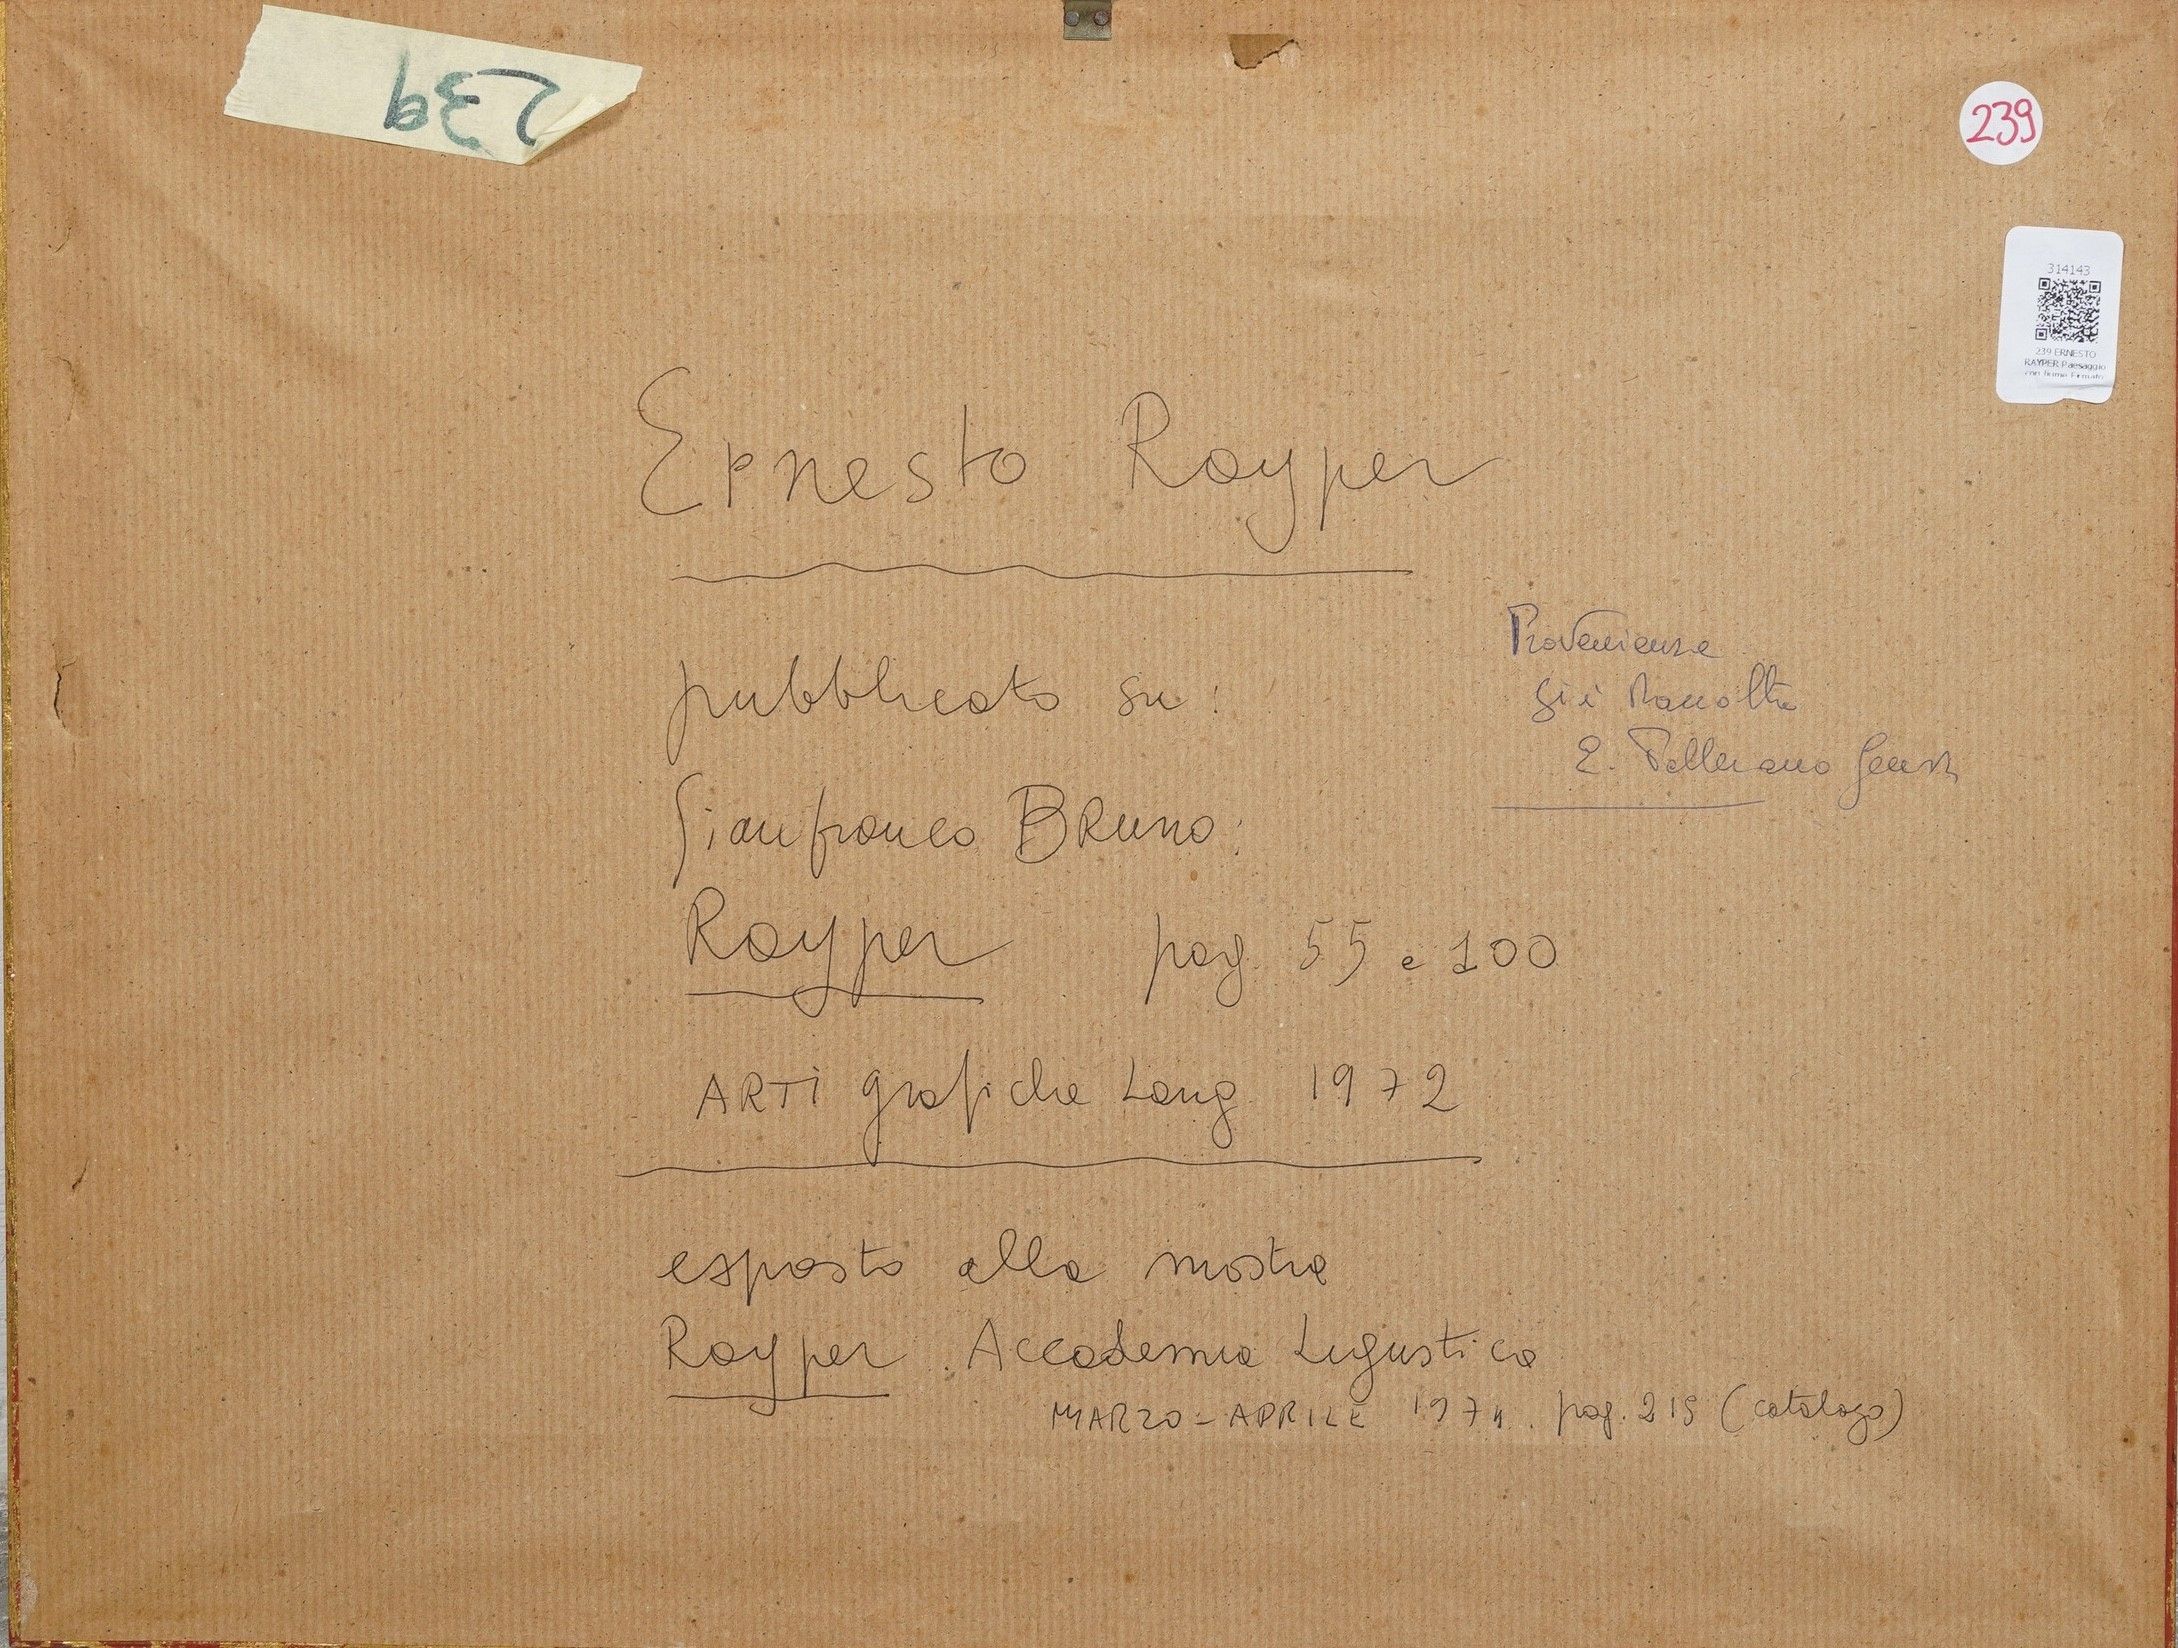 239
239
314143
239 ERNESTO
RAYPER Paesaggio
con fiume Firmato
Ernesto Rayper
Provenienza
già Raccolta
E. Pellerano
pubblicato su:
Gianfranco BRUNO:
Rayper pag. 55 e 100
ARTI grafiche Lang 1972
esposto alla mostra
Rayper. Accademia Ligustica
MARZO-APRILE 1974. pag. 219 (catalogo)